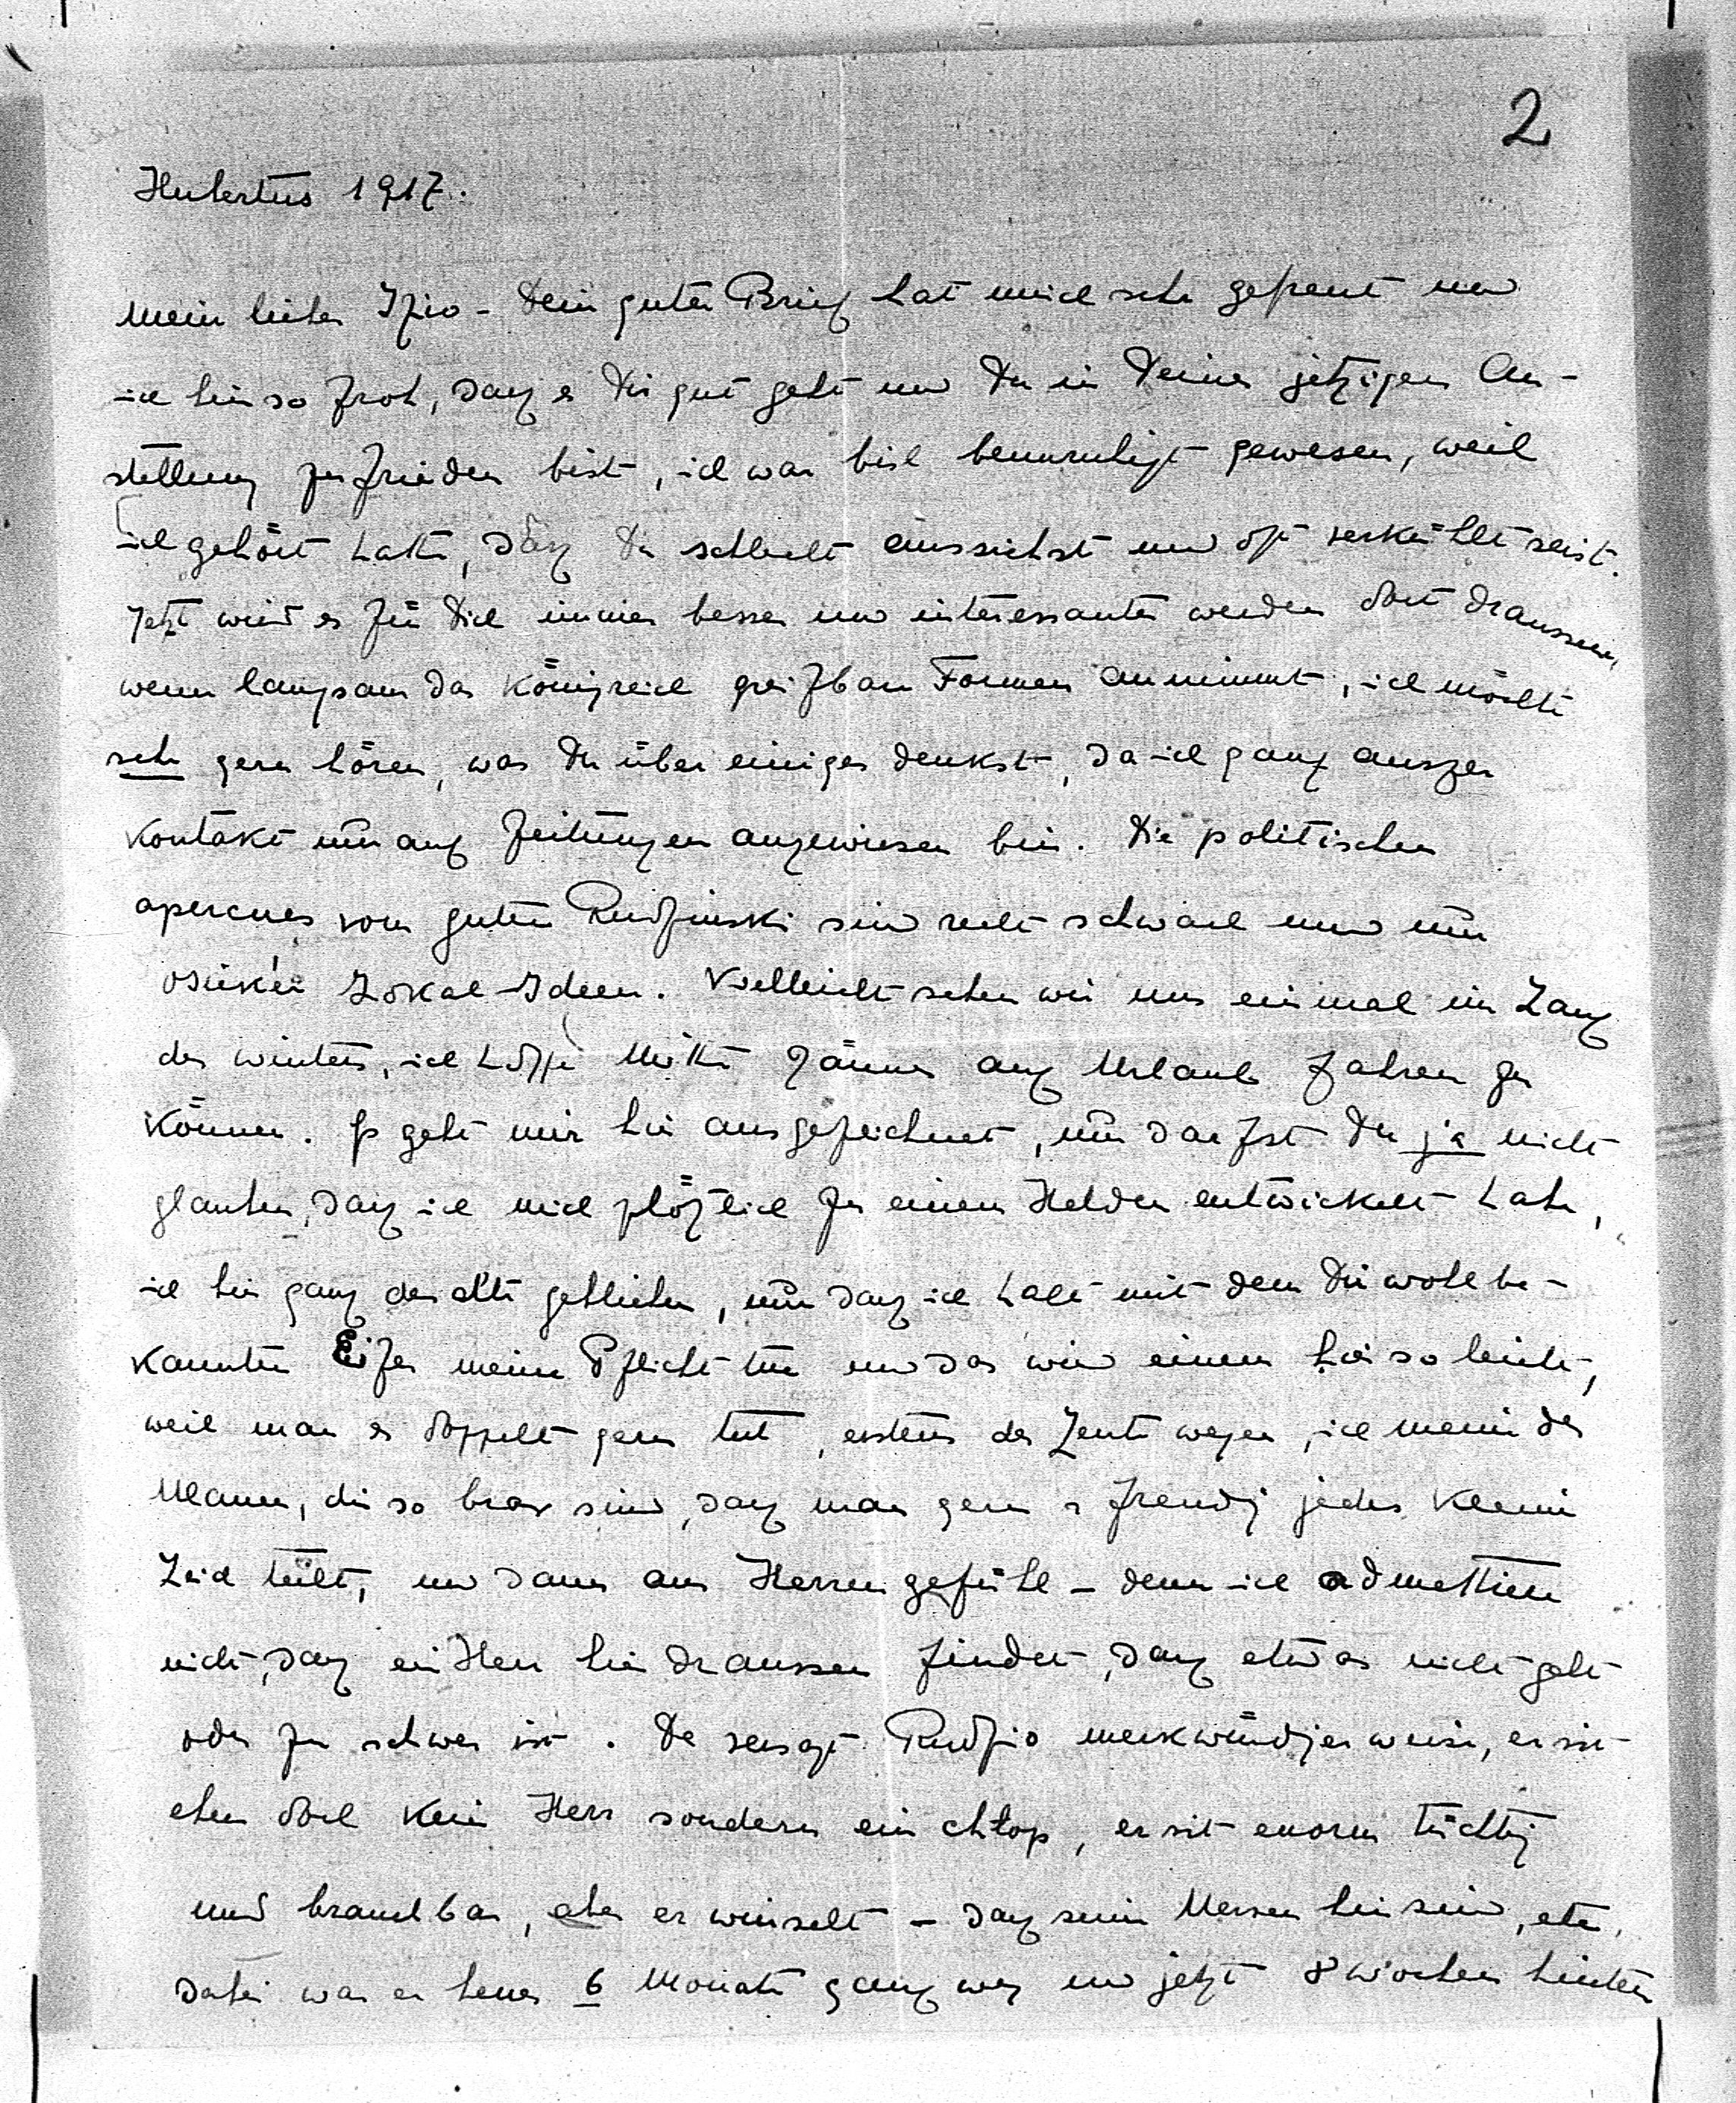 2
Hubertus 1917.
Mein lieber Izio - Dein guter Brief hat mich sehr gefreut und
ich bin so froh, dasz es Dir gut geht und Du in Deiner jetzigen An-
stellung zufrieden bist, ich war bisl beunruhigt gewesen, weil
ich gehört hatte, dasz Du schlecht aussiehst und oft verkühlt seist.
Jetzt wird es für Dich immer besser und interessanter werden dort draussen,
wenn langsam das Königreich greifbare Formen annimmt, ich möchte
sehr gern hören, was Du über einiges denkst, da ich ganz auszer
Kontakt nur auf Zeitungen angewiesen bin. Die politischen
apercues vom guten Rudzinski sind recht schwach und nur
osieker Lokal-Ideen. Vielleicht sehen wir uns einmal im Lauf
des Winters, ich hoffe Mitte Jänner auf Urlaub fahren zu
können. Es geht mir hier ausgezeichnet, nur darfst Du ja nicht
glauben, dasz ich mich plözlich zu einem Helden entwickelt habe,
ich bin ganz der alte geblieben, nur dasz ich halt mit dem Dir wohlbe-
kannten Eifer meine Pflicht tue und das wird einem hier so leicht,
weil man es doppelt gern tut, erstens der Leute wegen, ich meine der
Mann, die so brav sind, dasz man gern & freudig jedes kleine
Leid teilt, und dann aus Herrengefühl - denn ich admettiere
nicht, dasz ein Herr hier draussen findet, dasz etwas nicht geht
oder zu schwer ist. Da versagt Rudzio merkwürdigerweise, er ist
eben doch kein Herr sondern ein chłop, er ist enorm tüchtig
und brauchbar, aber er winselt - dasz seine Nerven hin sind, etc.
Dabei war er heuer 6 Monate ganz weg und jetzt 8 Wochen hinten